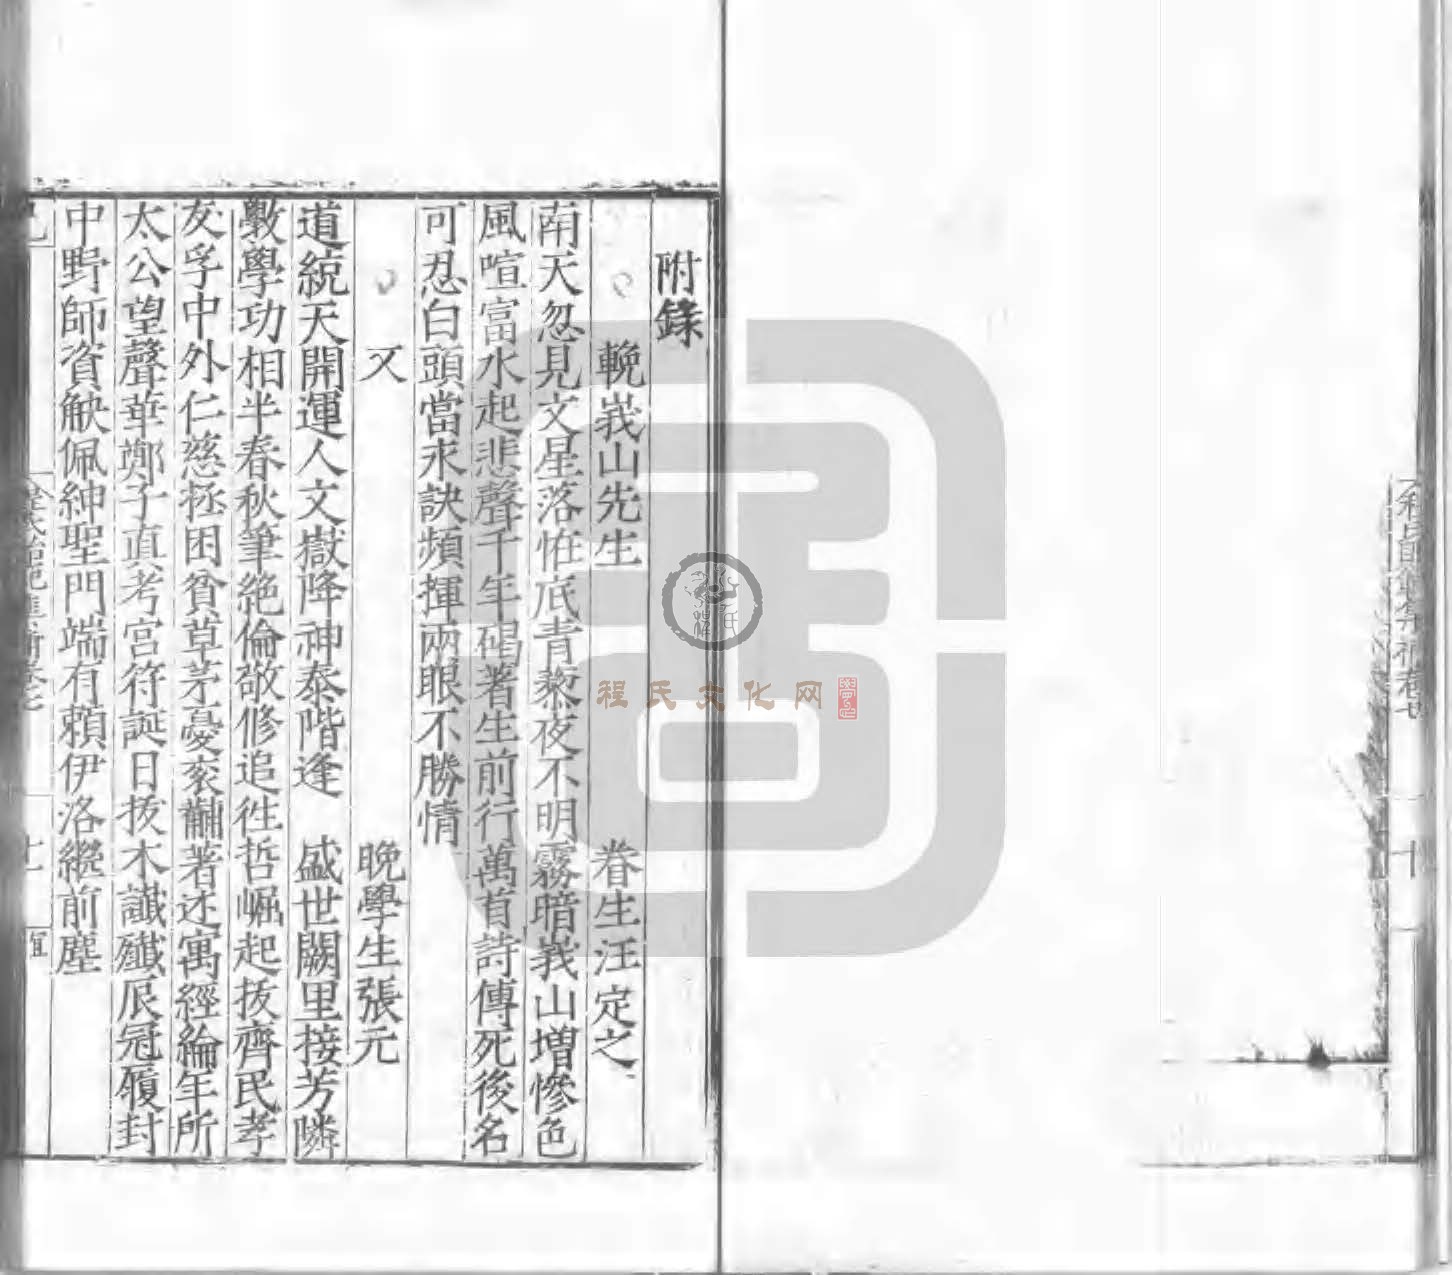 附錄
輓峩山先生 眷生汪定之
南天忽見文星落惟底青藜夜不明霧暗峩山增慘色
風喧富水起悲聲千年碣著生前行萬首詩傳死後名
可忍白頭當永訣頻揮兩眼不勝情
又 晚學生張元
道統天開運人文嶽降神泰階逢 盛世闕里接芳隣
斅學功相半春秋筆絶倫敬修追徃哲崛起拔齊民孝
友孚中外仁慈拯困貧草茅憂衮黼著述寓經綸年所
太公望聲華鄭子真考宫符誕日拔木讖殲辰冠履封
中野師資觖佩紳聖門端有賴伊洛繼前塵
程氏文化网